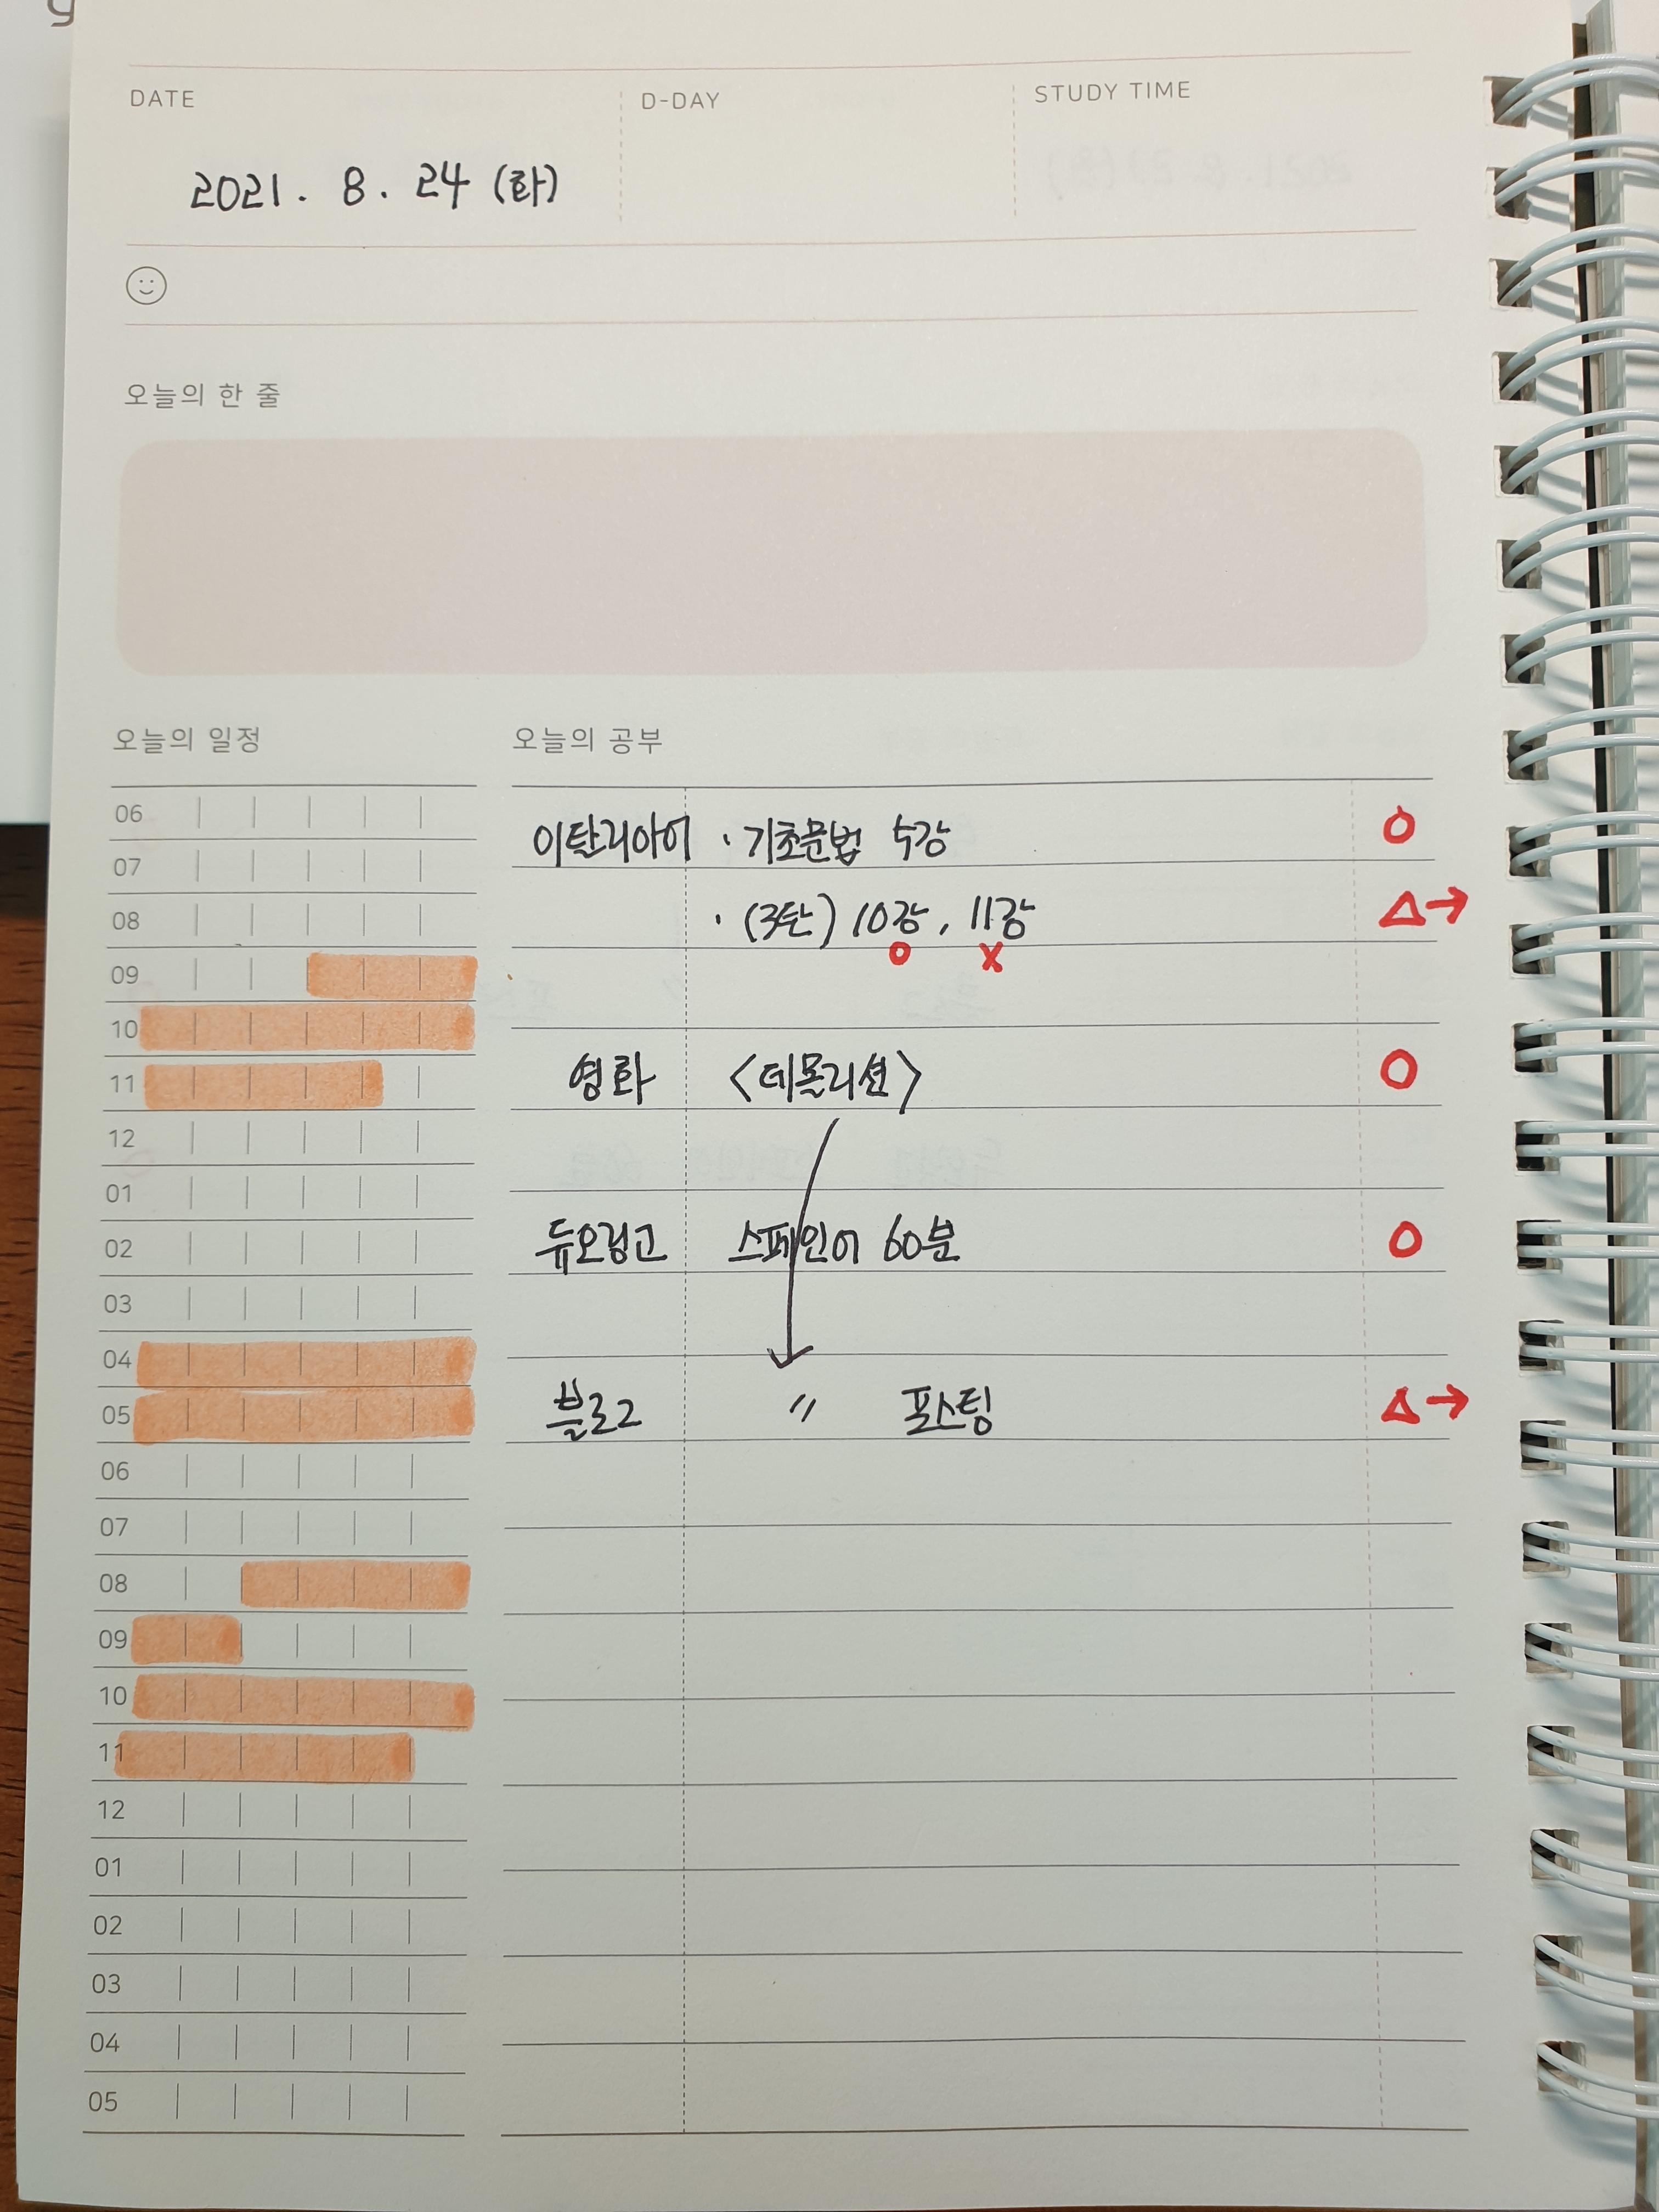 DATE
D-DAY
STUDY TIME
2021. 8. 24 (화)
오늘의 한 줄
오늘의 일정
오늘의 공부
06
07
08
09
10
11
12
01
02
03
04
05
06
07
08
09
10
11
12
01
02
03
04
05
이탈리아어 · 기초문법 5강 O
· (3탄) 10강, 11강 △→
O X
영화 <데몰리션> O
듀오링고 스페인어 60분 O
블로그 〃 포스팅 △→